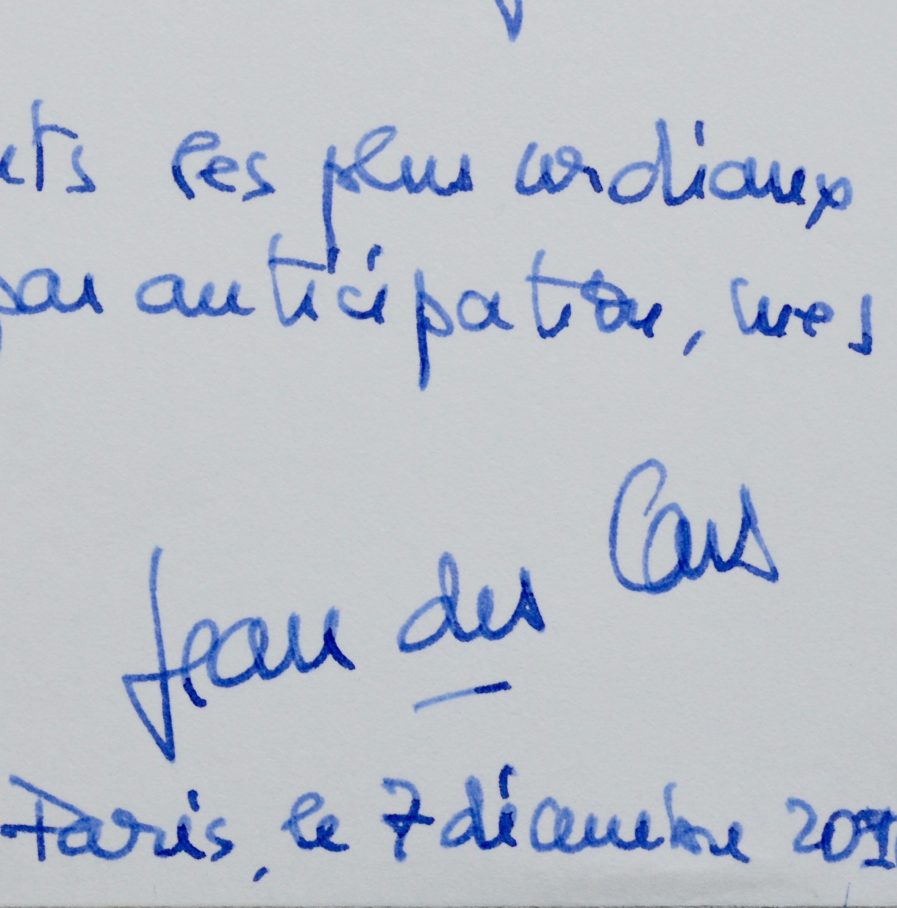 les plus cordiaux
par anticipation, mes
Jean des Cars
Paris, le 7 décembre